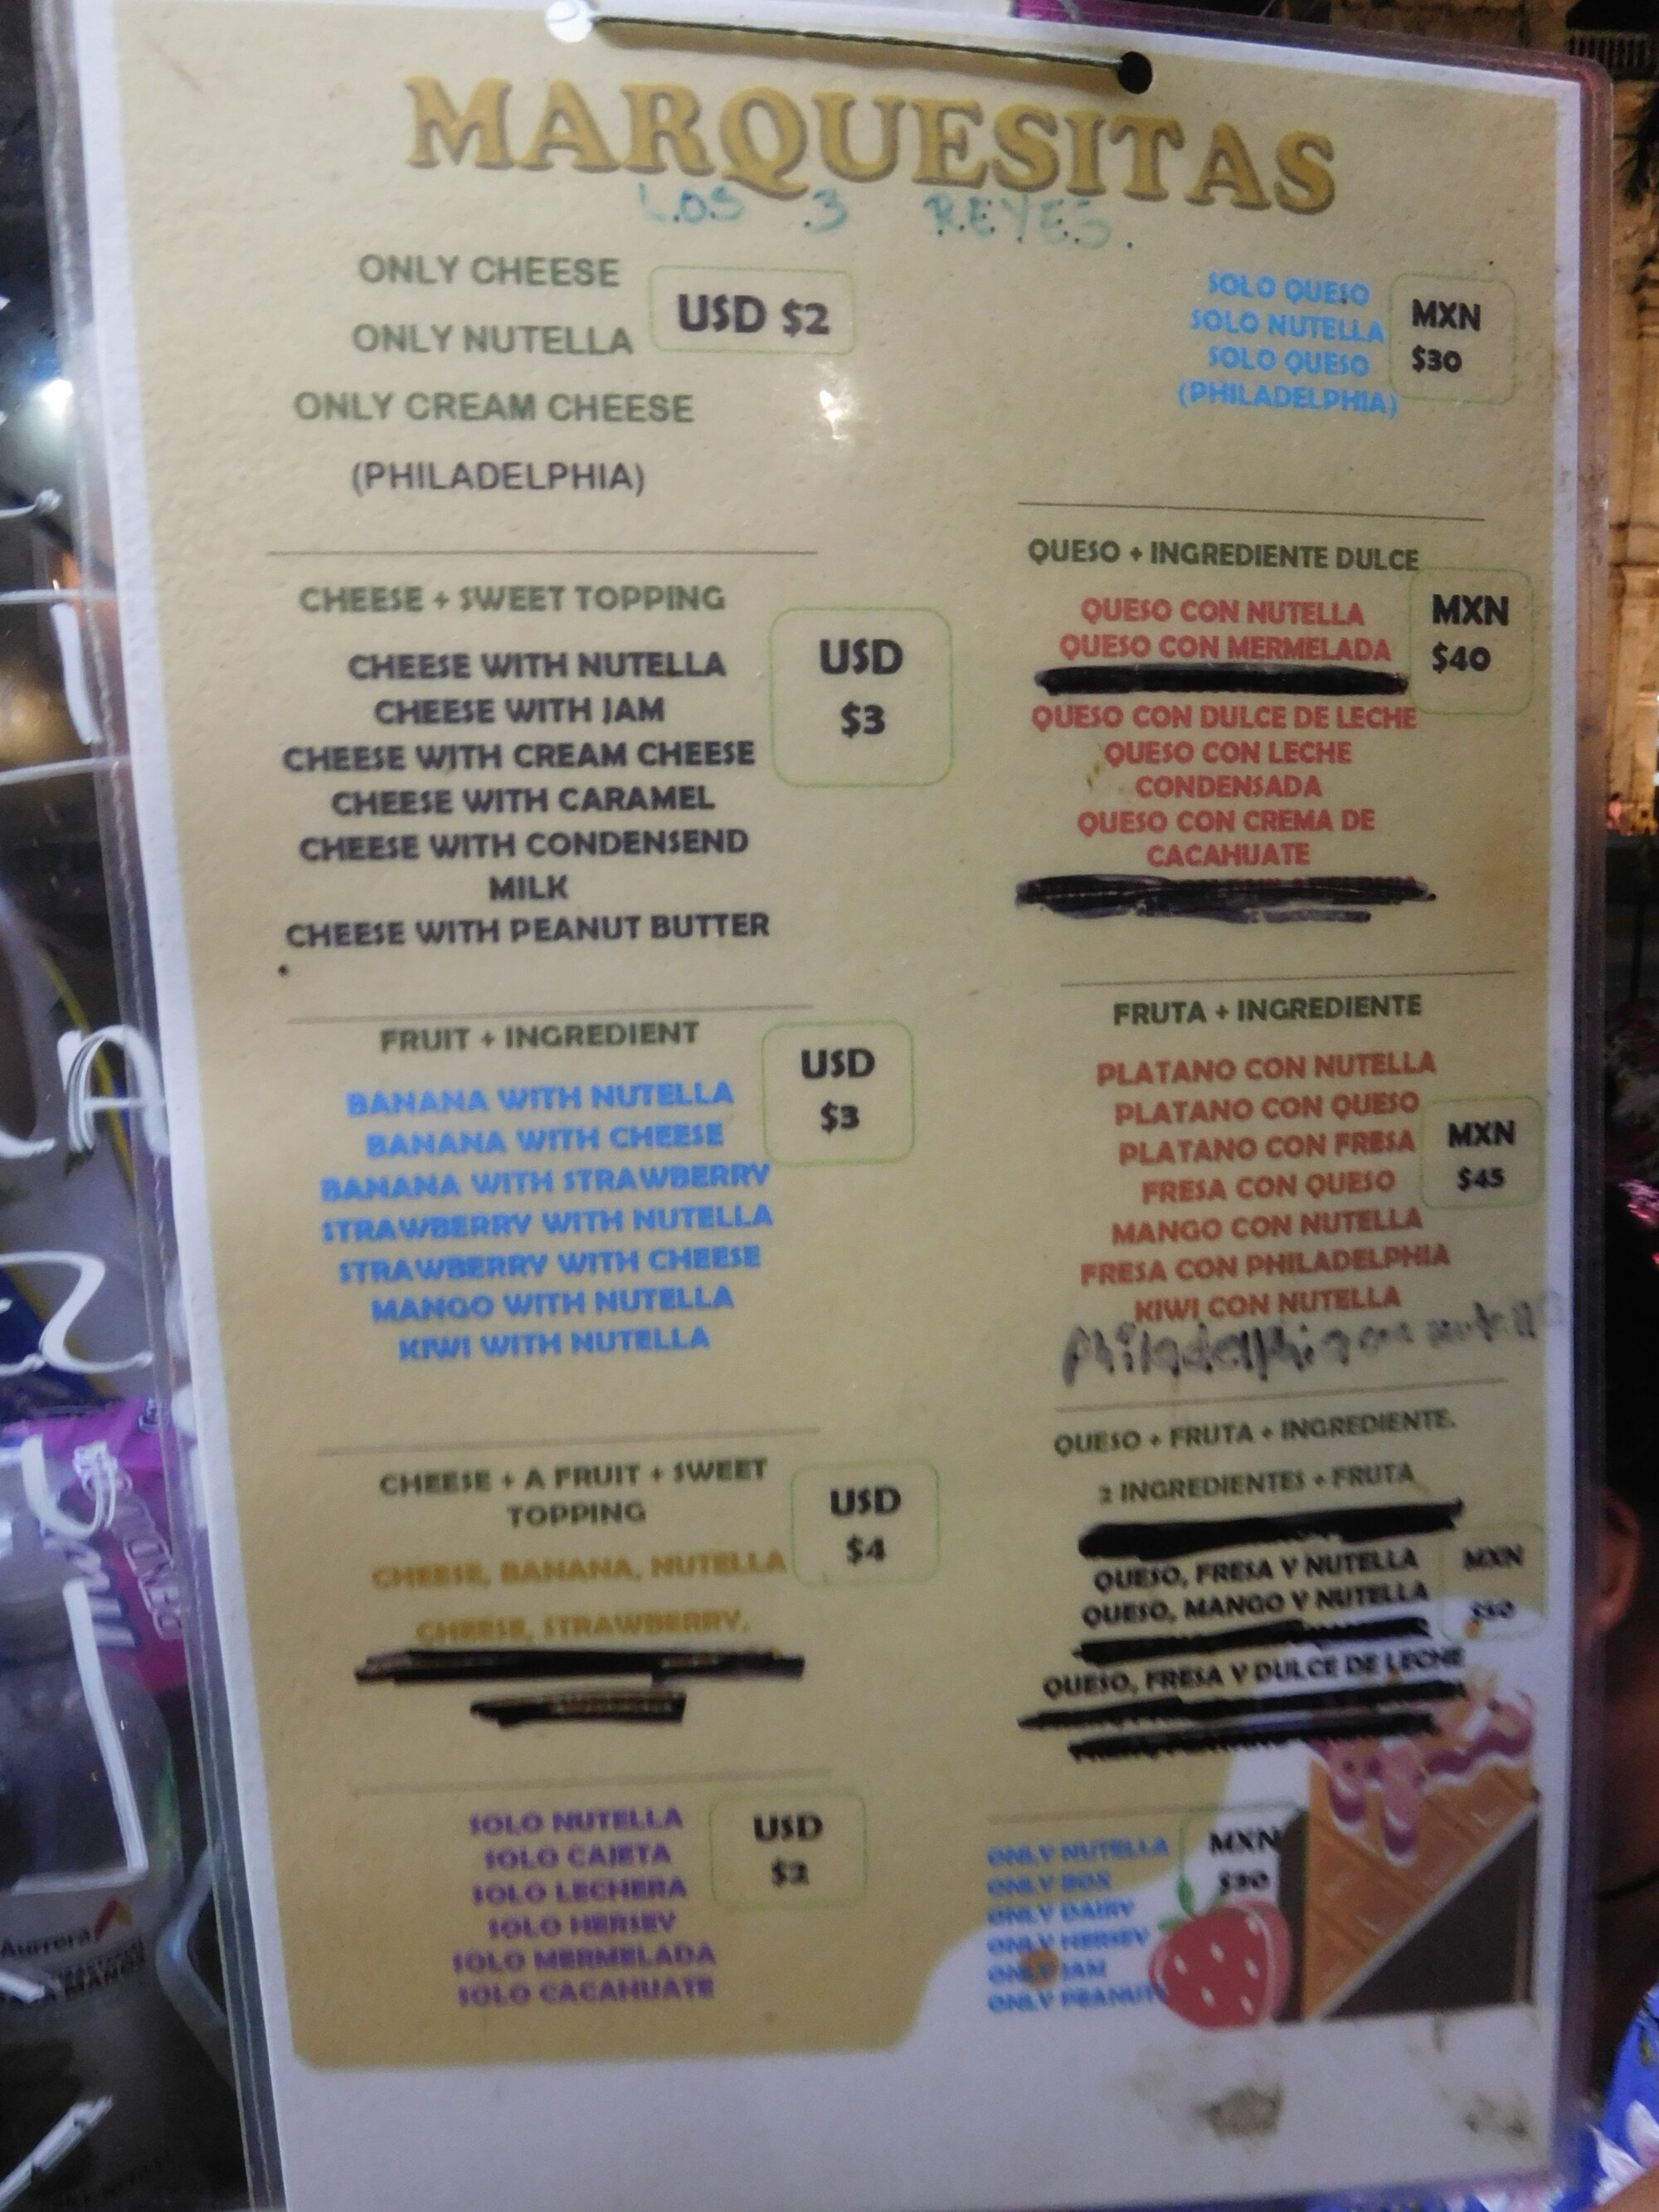 MARQUESITAS
LOS 3 REYES.
ONLY CHEESE
ONLY NUTELLA
ONLY CREAM CHEESE
(PHILADELPHIA)
USD $2
CHEESE + SWEET TOPPING
CHEESE WITH NUTELLA
CHEESE WITH JAM
CHEESE WITH CREAM CHEESE
CHEESE WITH CARAMEL
CHEESE WITH CONDENSEND
MILK
CHEESE WITH PEANUT BUTTER
USD
$3
FRUIT + INGREDIENT
BANANA WITH NUTELLA
BANANA WITH CHEESE
BANANA WITH STRAWBERRY
STRAWBERRY WITH NUTELLA
STRAWBERRY WITH CHEESE
MANGO WITH NUTELLA
KIWI WITH NUTELLA
USD
$3
CHEESE + A FRUIT + SWEET
TOPPING
CHEESE, BANANA, NUTELLA
CHEESE, STRAWBERRY,
USD
$4
SOLO NUTELLA
SOLO CAJETA
SOLO LECHERA
SOLO HERSEY
SOLO MERMELADA
SOLO CACAHUATE
USD
$2
SOLO QUESO
SOLO NUTELLA
SOLO QUESO
(PHILADELPHIA)
MXN
$30
QUESO + INGREDIENTE DULCE
QUESO CON NUTELLA
QUESO CON MERMELADA
QUESO CON DULCE DE LECHE
QUESO CON LECHE
CONDENSADA
QUESO CON CREMA DE
CACAHUATE
MXN
$40
FRUTA + INGREDIENTE
PLATANO CON NUTELLA
PLATANO CON QUESO
PLATANO CON FRESA
FRESA CON QUESO
MANGO CON NUTELLA
FRESA CON PHILADELPHIA
KIWI CON NUTELLA
Philadelphia con
MXN
$45
QUESO + FRUTA + INGREDIENTE.
2 INGREDIENTES + FRUTA
QUESO, FRESA Y NUTELLA
QUESO, MANGO Y NUTELLA
QUESO, FRESA Y DULCE DE LECHE
MXN
$50
ONLY NUTELLA
ONLY BOX
ONLY DAIRY
ONLY HERSEY
ONLY JAM
ONLY PEANUT
MXN
$30
Aurrera